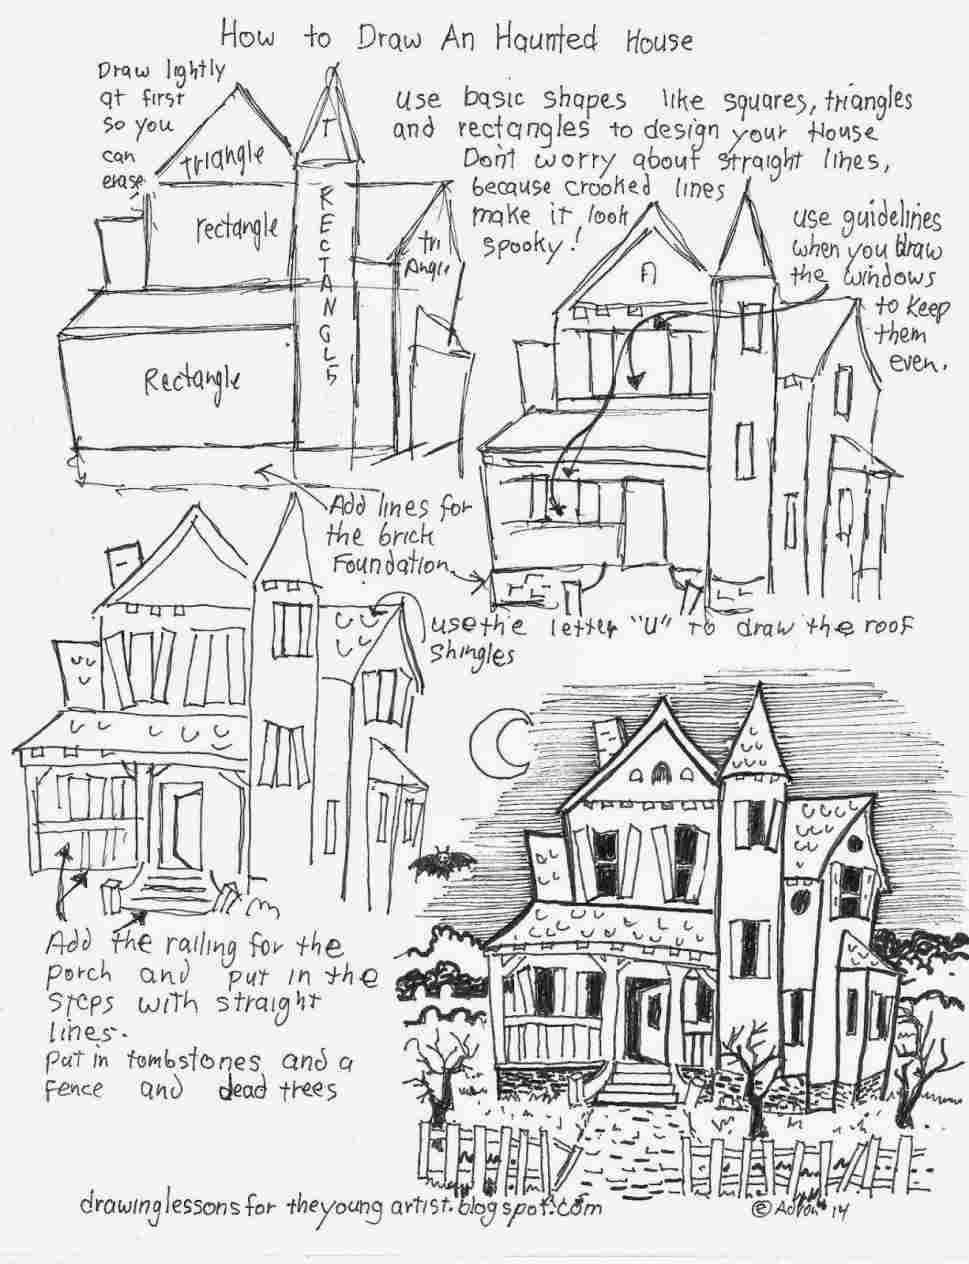 How to Draw An Haunted House
Draw lightly
at first
so you
can
erase
use basic shapes like squares, triangles
and rectangles to design your House
Don't worry about straight lines,
because crooked lines
make it look
spooky!
triangle
T
rectangle
RECTANGLE
tri
Angle
Rectangle
use guidelines
when you draw
the windows
to keep
them
even.
Add lines for
the brick
Foundation
use the letter "U" to draw the roof
shingles
Add the railing for the
porch and put in the
steps with straight
lines.
Put in tombstones and a
fence and dead trees
drawinglessonsfortheyoungartist.blogspot.com
© Adron '14